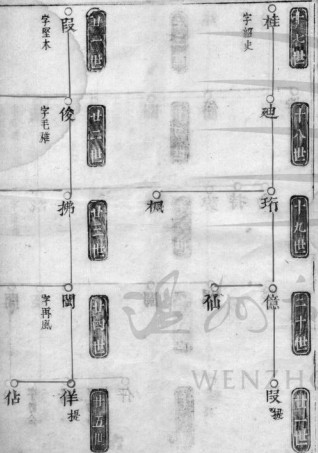 十七世
桂
字紹史
十八世
十九世
珩
楓
二十世
億
仙
廿一世
叚
廿一世
叚
字堅木
廿二世
俊
字毛雄
廿三世
拂
廿四世
閩
字再風
廿五世
佯
佔
WENZHO